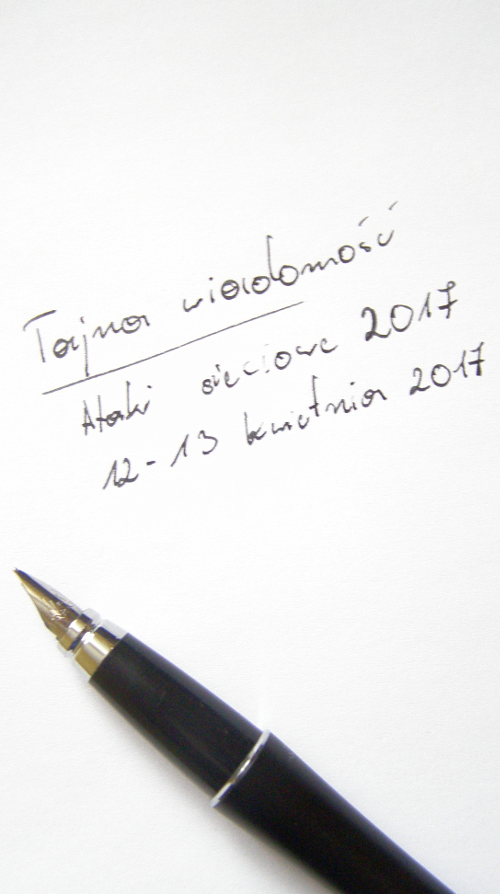 Tajna wiadomość
Ataki sieciowe 2017
12-13 kwietnia 2017